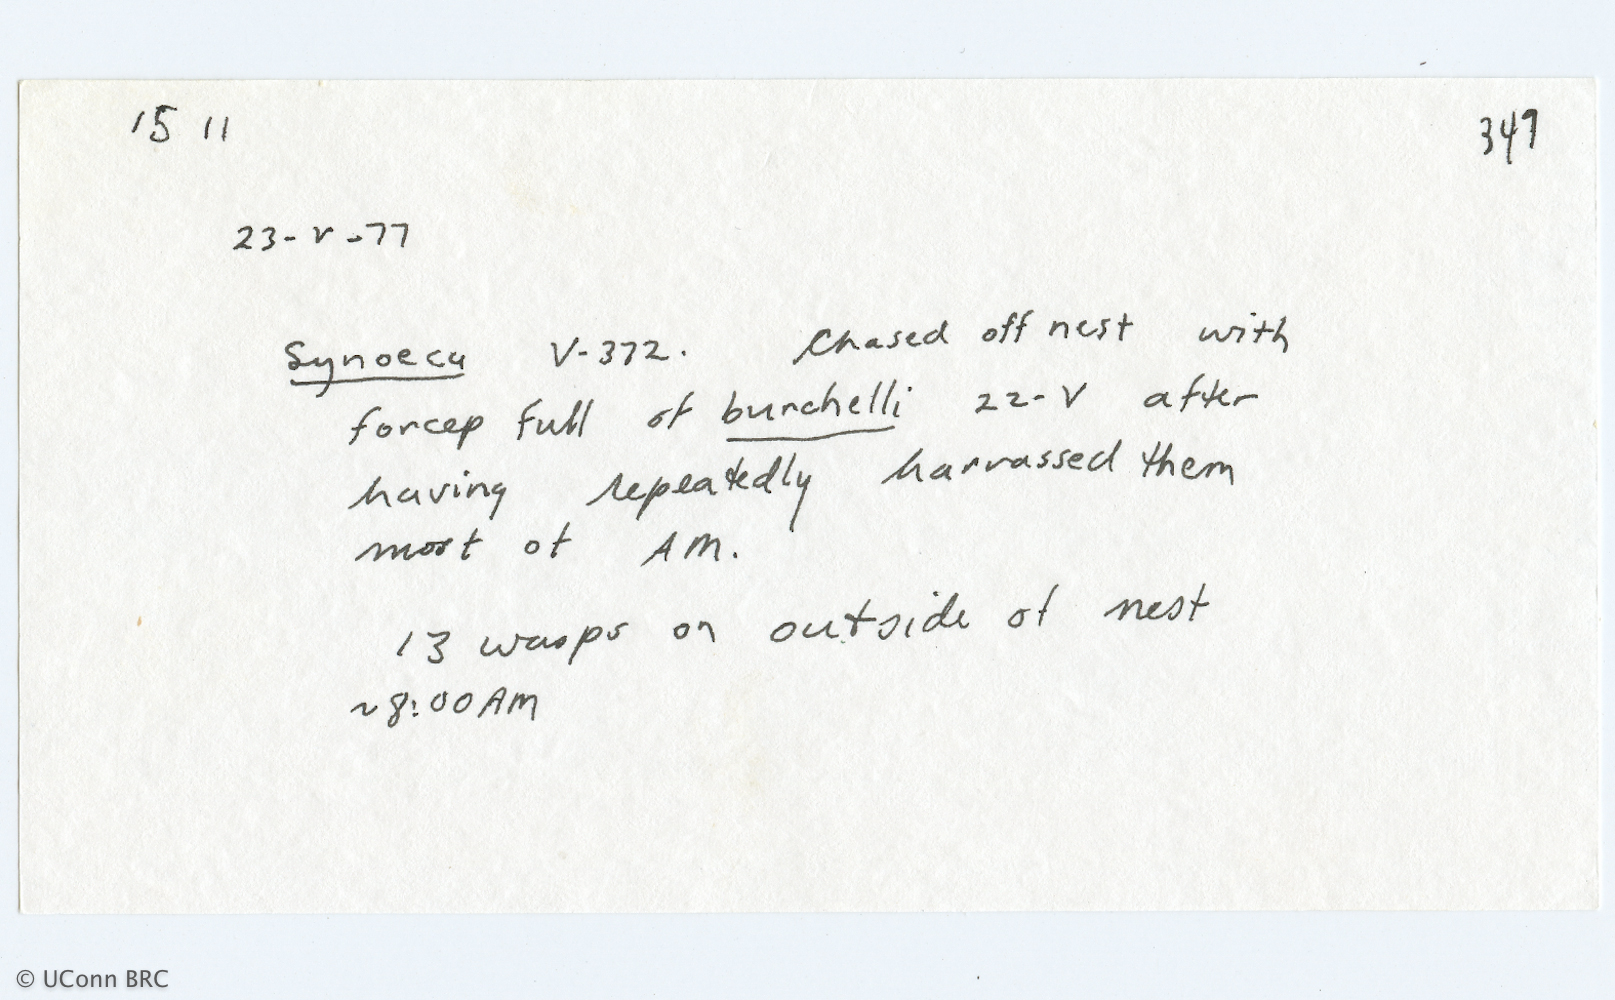 15 11 349
23-V-77
Synoeca V-372. Chased off nest with
forcep full of burchelli 22-V after
having repeatedly harrassed them
most of AM.
13 wasps on outside of nest
~8:00AM
© UConn BRC